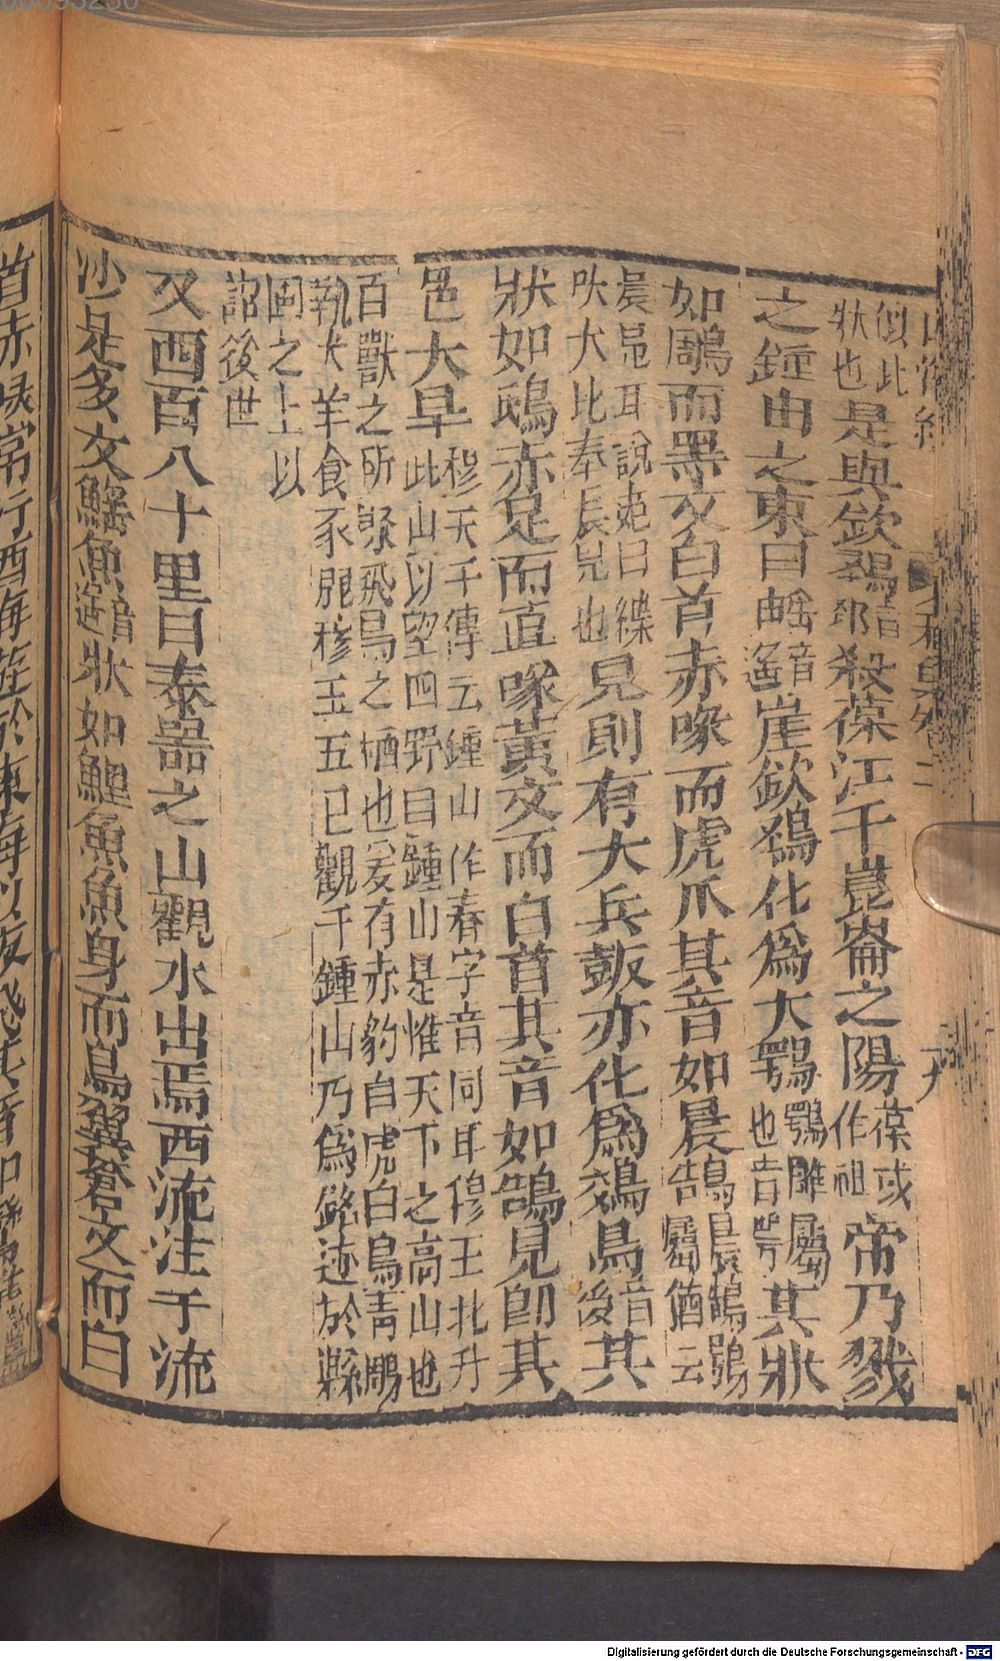 似此狀也是與欽䲹音邳殺葆江于崑崙之陽葆或作祖帝乃戮
之鍾山之東曰㟴音遙崖欽䲹化爲大鶚鶚雕屬也音咢其狀
如鵰而黑文白首赤喙而虎爪其音如晨鵠晨鵠鶚屬猶云
晨鳧耳說苑曰緤吠犬比奉晨鳧也見則有大兵鼓亦化爲鵕鳥音後其
狀如鴟赤足而直喙黃文而白首其音如鵠見卽其
邑大旱穆天子傳云鍾山作舂字音同耳穆王北升此山以望四野曰鍾山是惟天下之高山也
百獸之所聚飛鳥之栖也爰有赤豹白虎白鳥靑鵰
執犬羊食豕鹿穆王五日觀于鍾山乃爲銘迹於縣
圃之上以詔後世
又西百八十里曰泰器之山觀水出焉西流注于流
沙是多文鰩魚音遙狀如鯉魚魚身而鳥翼蒼文而白
Digitalisierung gefördert durch die Deutsche Forschungsgemeinschaft - DFG